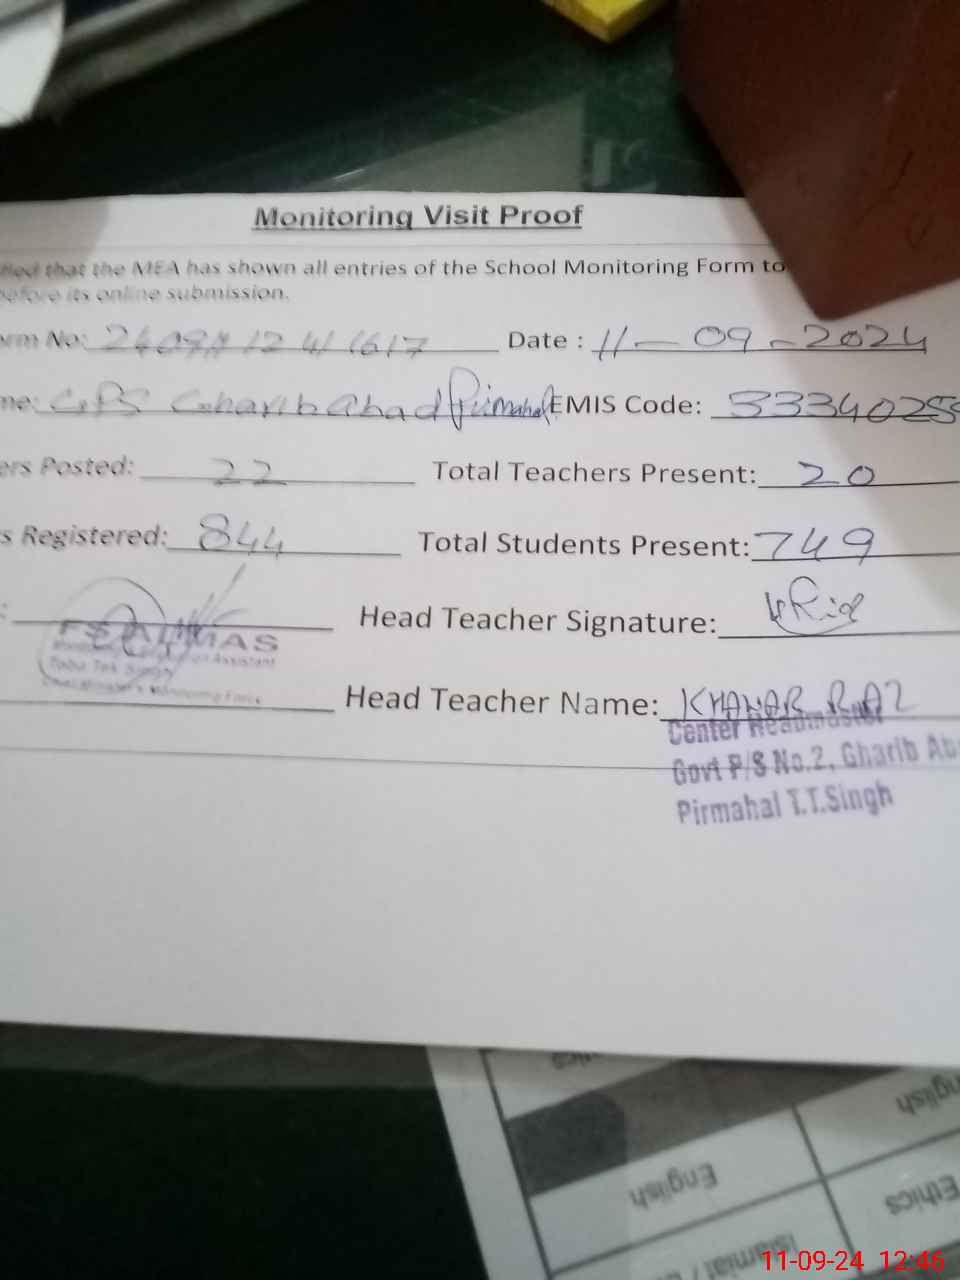 Monitoring Visit Proof
fied that the MEA has shown all entries of the School Monitoring Form to
before its online submission.
orm No: Date : 11-09-2024
me: GPS Gharib Abad Pirmahal EMIS Code: 3334025
ers Posted: 22 Total Teachers Present: 20
s Registered: 844 Total Students Present: 749
: Head Teacher Signature:
Assistant
Toba Tek Singh
Monitoring Force
Head Teacher Name:
Center Headmaster
Govt P/S No.2, Gharib Ab
Pirmahal T.T.Singh
English
English
Ethics
Islamiat /
11-09-24 12:46